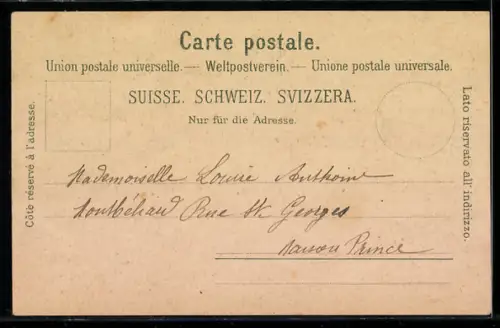 Carte postale.
Union postale universelle. — Weltpostverein. — Unione postale universale.
SUISSE. SCHWEIZ. SVIZZERA.
Nur für die Adresse.
Côté réservé à l'adresse.
Lato riservato all' indirizzo.
Mademoiselle Louise Anthoine
Montbéliard Rue St. Georges
Maison Prince